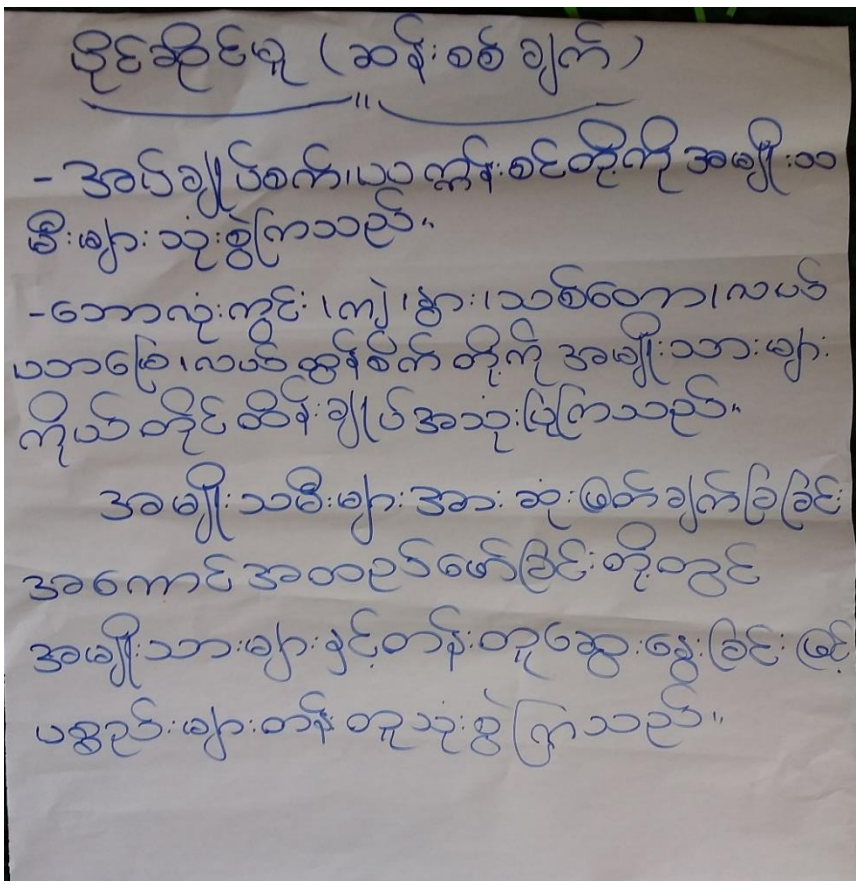 ပိုင်ဆိုင်မှု (ဆန်းစစ်ချက်)
- အပ်ချုပ်စက်၊ယက္ကန်းစင်တို့ကို အမျိုးသ
မီးများ သုံးစွဲကြသည်။
- ဘောလုံးကွင်း၊ကျွဲ၊နွား၊သစ်တော၊လယ်
ယာမြေ၊လယ်ထွန်စက် တို့ကို အမျိုးသားများ
ကိုယ်တိုင်ထိန်းချုပ်အသုံးပြုကြသည်။
အမျိုးသမီးများအား ဆုံးဖြတ်ချက်ခြခြင်း
အကောင်အထည်ဖော်ခြင်းတို့တွင်
အမျိုးသားများနှင့်တန်းတူဆွေးနွေးခြင်းဖြင့်
ပစ္စည်းများတန်းတူသုံးစွဲကြသည်။